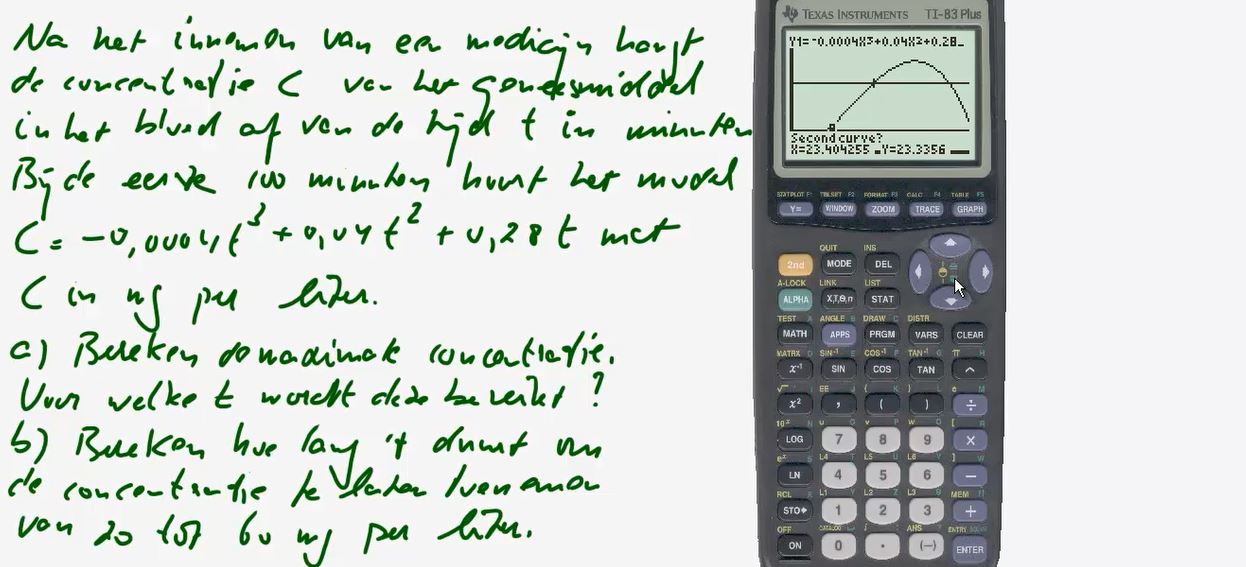 Na het innemen van een medicijn hangt
de concentratie C van het geneesmiddel
in het bloed af van de tijd t in minuten
Bij de eerste 100 minuten hoort het model
C = -0,0004t³ + 0,04t² + 0,28t met
C in mg per liter.
a) Bereken de maximale concentratie.
Voor welke t wordt deze bereikt?
b) Bereken hoe lang 't duurt om
de concentratie te laten toenemen
van 20 tot 60 mg per liter.
TEXAS INSTRUMENTS TI-83 Plus
Y1=-0.0004X^3+0.04X²+0.28
Second curve?
X=23.404255 Y=23.3356
STAT PLOT F1 TBLSET F2 FORMAT F3 CALC F4 TABLE F5
Y= WINDOW ZOOM TRACE GRAPH
QUIT INS
2nd MODE DEL
A-LOCK LINK LIST
ALPHA X,T,Θ,n STAT
TEST A ANGLE B DRAW C DISTR
MATH APPS PRGM VARS CLEAR
MATRX D SIN⁻¹ E COS⁻¹ F TAN⁻¹ G π H
x⁻¹ SIN COS TAN ^
√ I EE J { K } L e M
x² , ( ) ÷
10ˣ N u O v P w Q [ R
LOG 7 8 9 ×
eˣ S L4 T L5 U L6 V ] W
LN 4 5 6 −
RCL X L1 Y L2 Z L3 θ MEM "
STO▸ 1 2 3 +
OFF CATALOG i : ANS ? ENTRY SOLVE
ON 0 . (−) ENTER